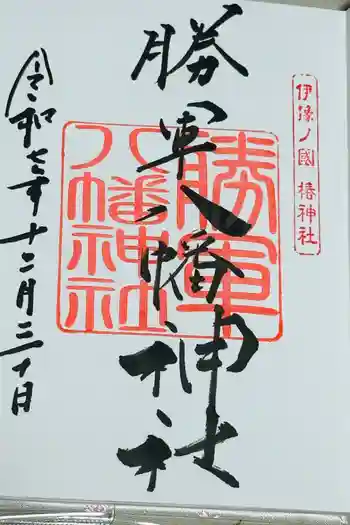 伊豫ノ國 椿神社
勝軍八幡神社
勝軍
八幡神社
令和七年十二月三十日